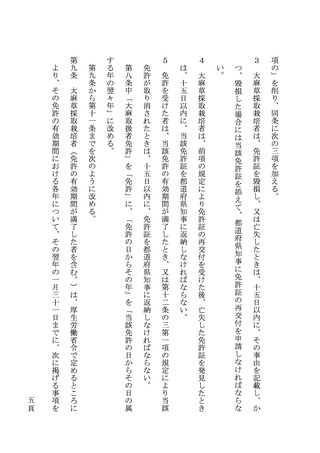 項の」を削り、同条に次の三項を加える。
３　大麻草採取栽培者は、免許証を毀損し、又は亡失したときは、十五日以内に、その事由を記載し、か
つ、毀損した場合には当該免許証を添えて、都道府県知事に免許証の再交付を申請しなければならな
い。
４　大麻草採取栽培者は、前項の規定により免許証の再交付を受けた後、亡失した免許証を発見したとき
は、十五日以内に、当該免許証を都道府県知事に返納しなければならない。
５　免許を受けた者は、当該免許の有効期間が満了したとき、又は第十二条の三第一項の規定により当該
免許が取り消されたときは、十五日以内に、免許証を都道府県知事に返納しなければならない。
第八条中「大麻取扱者免許」を「免許」に、「免許の日からその年」を「当該免許の日からその日の属
する年の翌々年」に改める。
第九条から第十一条までを次のように改める。
第九条　大麻草採取栽培者（免許の有効期間が満了した者を含む。）は、厚生労働省令で定めるところに
より、その免許の有効期間における各年について、その翌年の一月三十一日までに、次に掲げる事項を
五頁